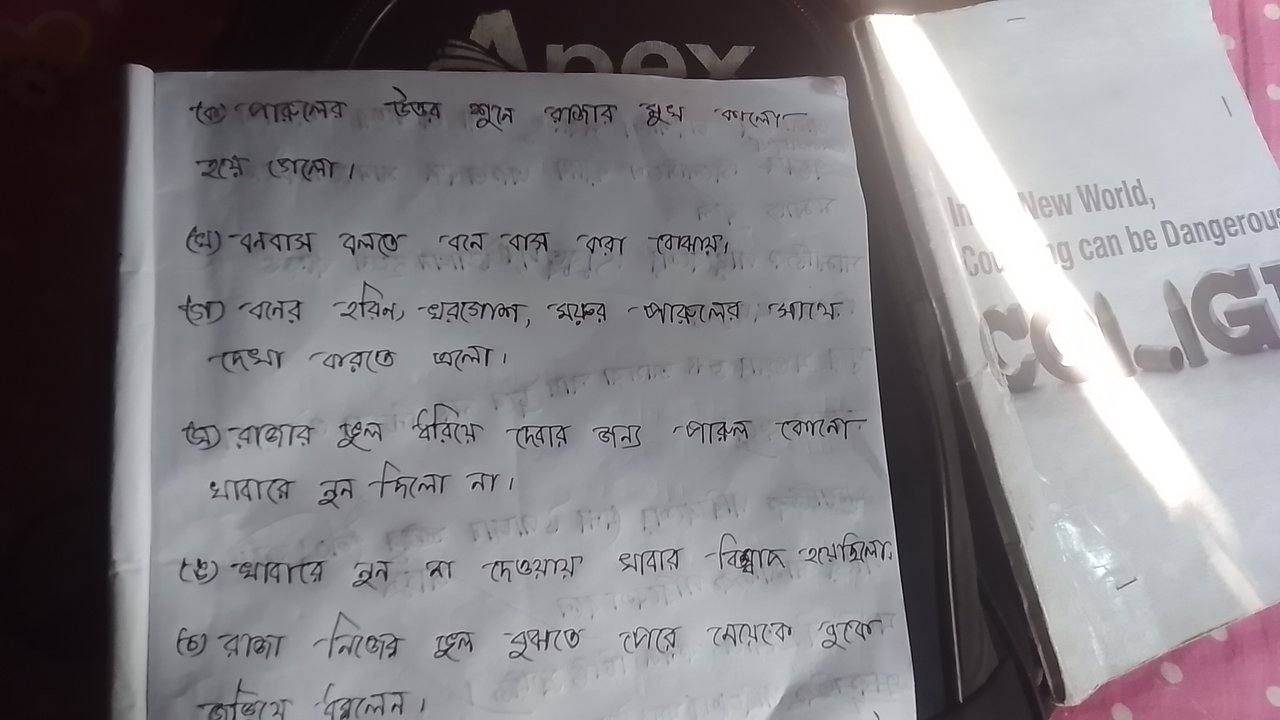 Apex
(ক) পারুলের উত্তর শুনে রাজার মুখ কালো
হয়ে গেলো।
(খ) বনবাস বলতে বনে বাস করা বোঝায়।
(গ) বনের হরিন, খরগোশ, ময়ুর পারুলের সাথে
দেখা করতে এলো।
(ঘ) রাজার ভুল ধরিয়ে দেবার জন্য পারুল কোনো
খাবারে নুন দিলো না।
(ঙ) খাবারে নুন না দেওয়ায় খাবার বিস্বাদ হয়েছিলো।
(চ) রাজা নিজের ভুল বুঝতে পেরে মেয়েকে বুকে
জড়িয়ে ধরলেন।
New World,
can be Dangerou